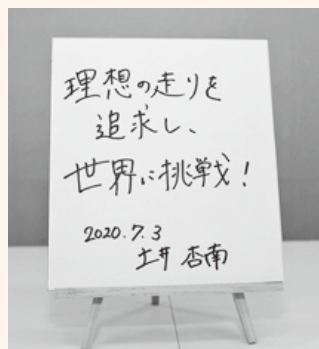 理想の走りを
追求し、
世界に挑戦！
2020.7.3
土井 杏南